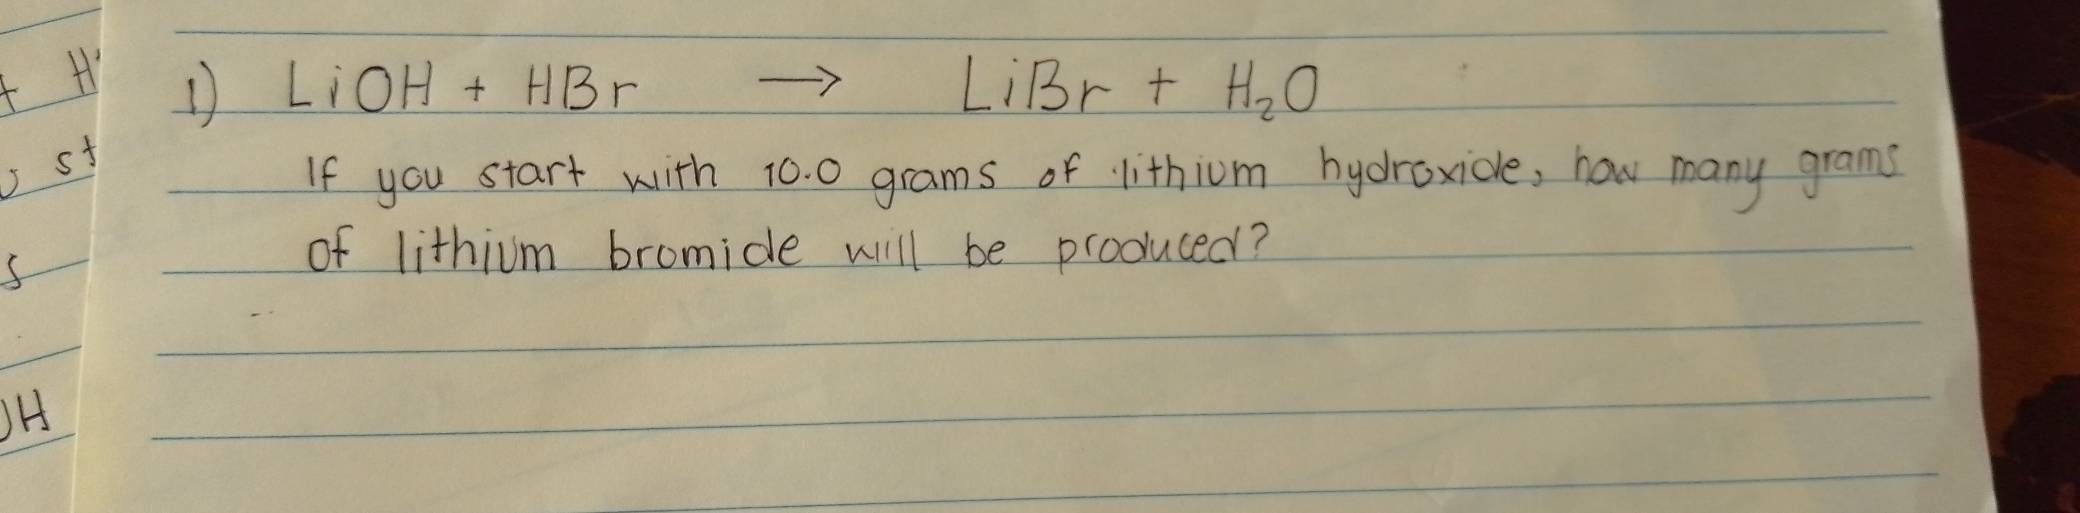 1) LiOH + HBr → LiBr + H₂O
If you start with 10.0 grams of lithium hydroxide, how many grams
of lithium bromide will be produced?
H
st
s
H